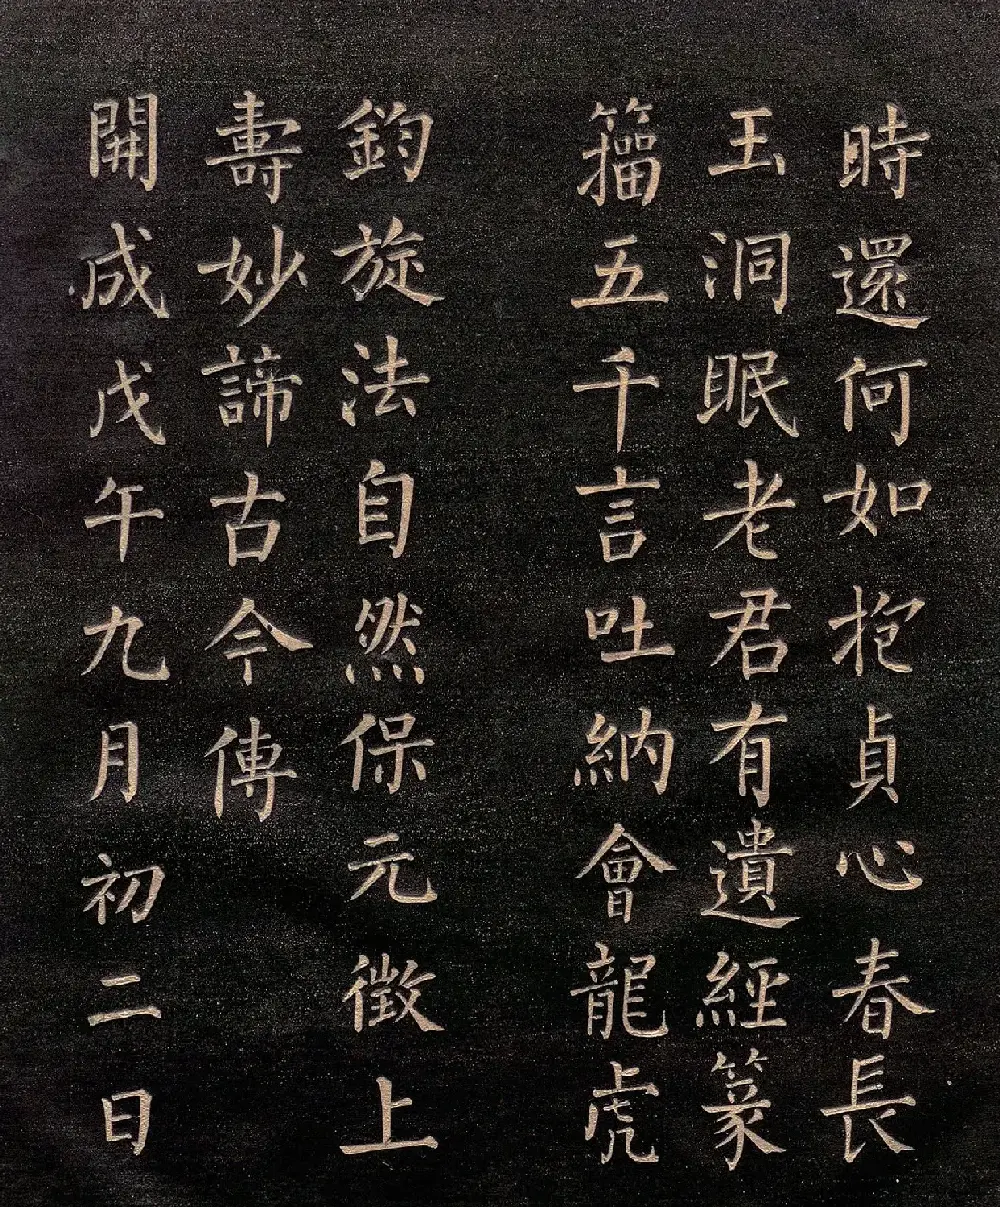 時還何如抱貞心春長
玉洞眠老君有遺經篆
籀五千言吐納會龍虎
鈞旋法自然保元徵上
壽妙諦古今傳
開成戊午九月初二日